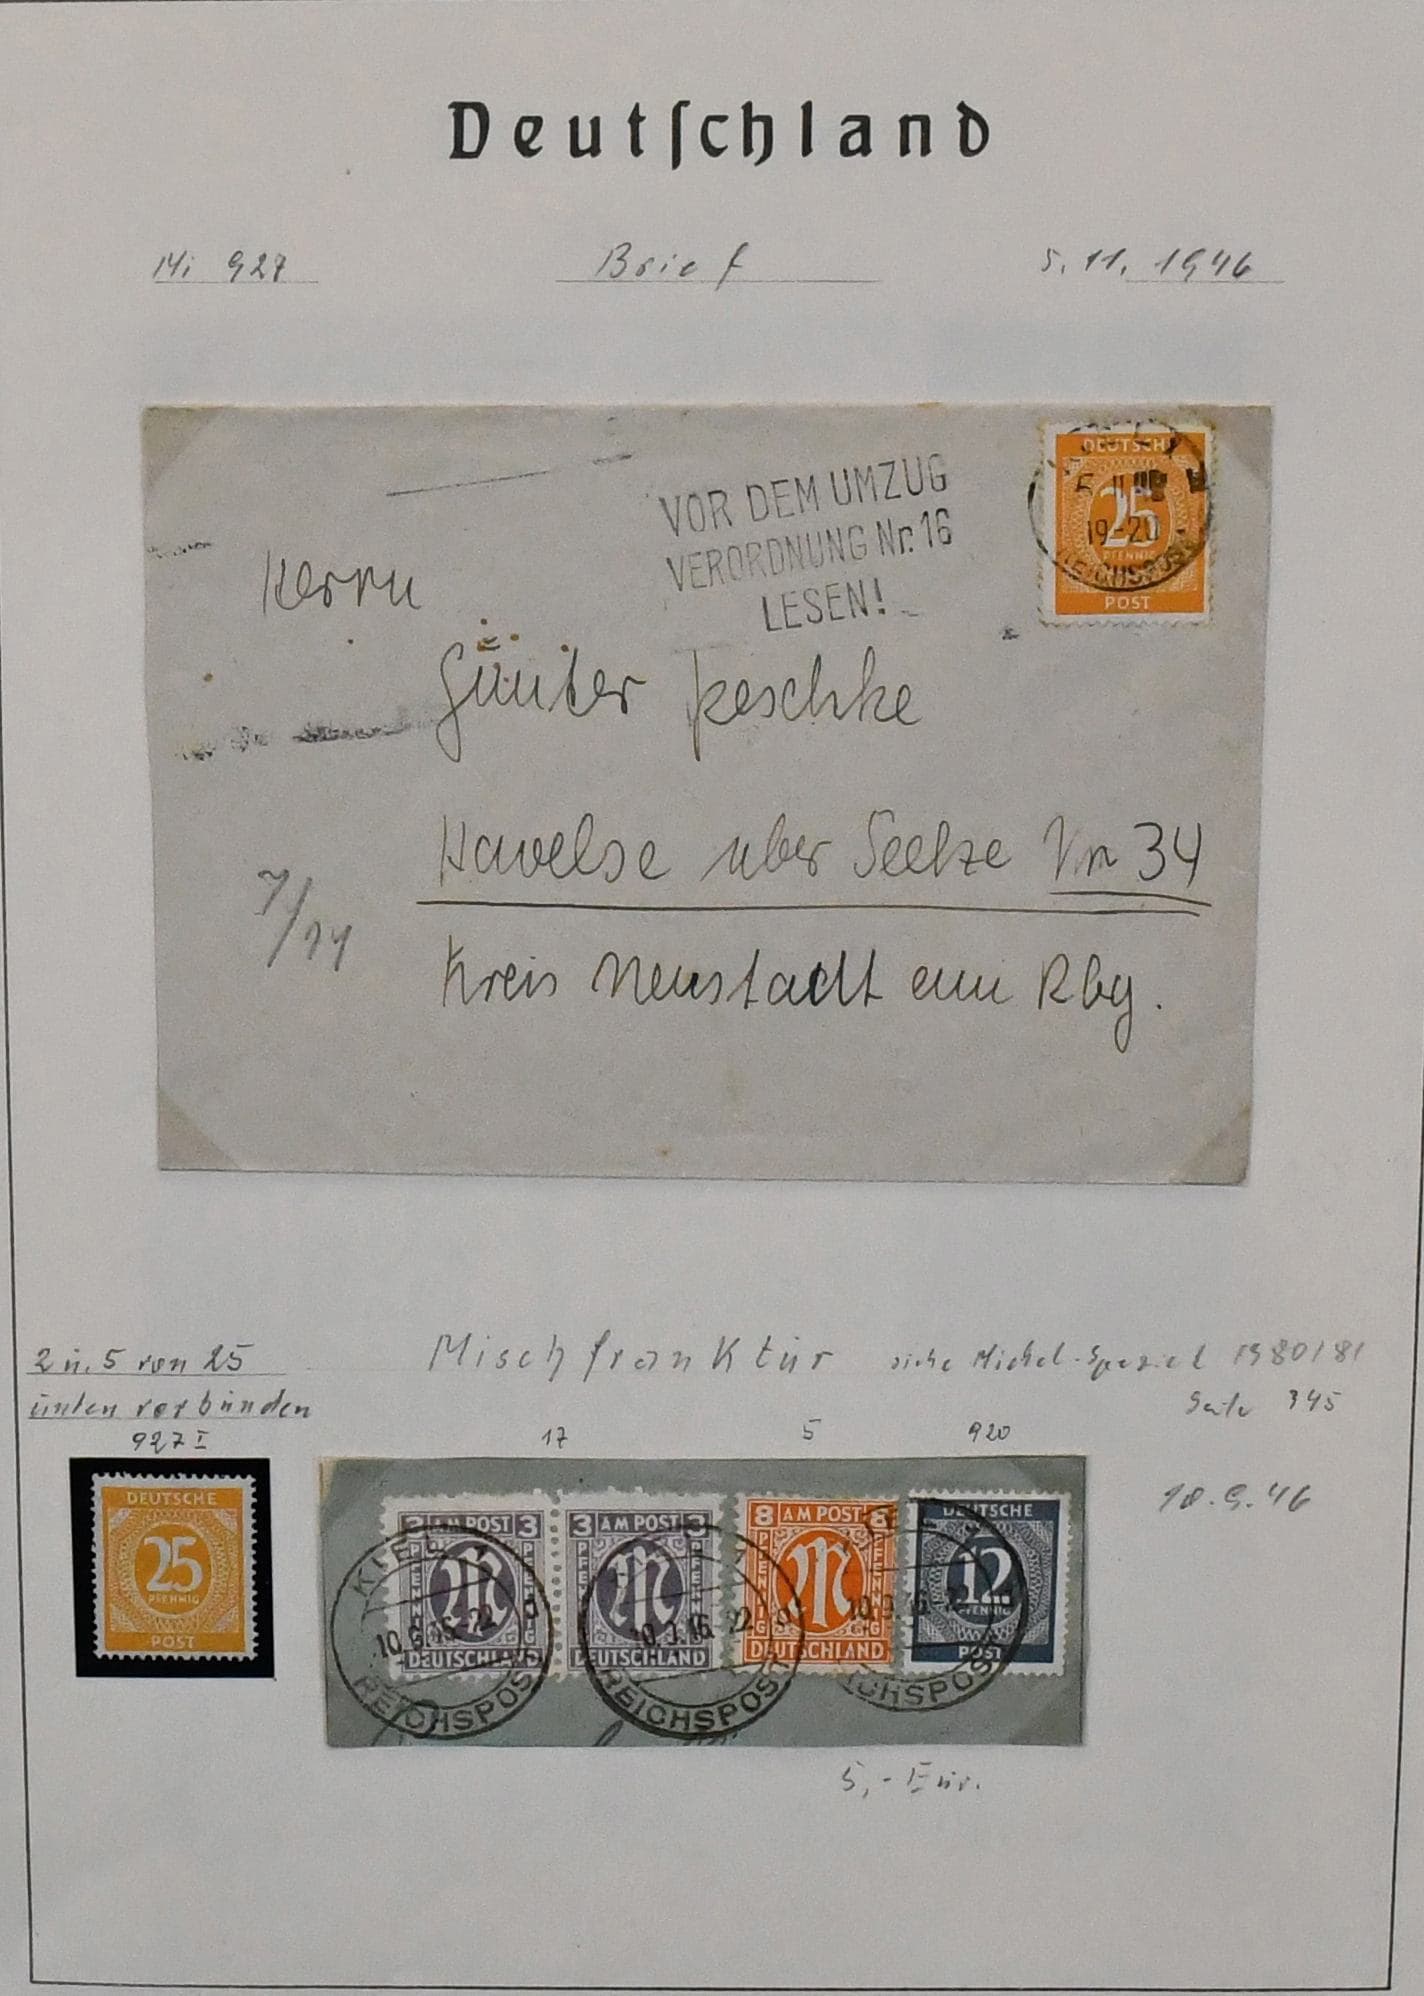 Deutſchland
Mi 927 Brief 5.11.1946
VOR DEM UMZUG
VERORDNUNG Nr. 16
LESEN!
DEUTSCHE
5 11 46
25
19-20
PFENNIG
REICHSPOST
POST
Herrn
Günter Jeschke
Havelse über Seelze Nr 34
7/14
Kreis Neustadt am Rbg.
2 u. 5 von 25
unten verbunden
927 I
Mischfrankatur siehe Michel-Spezial 1980/81
Seite 345
17 5 920
10.9.46
DEUTSCHE
25
PFENNIG
POST
3 AM POST 3
PFENNIG
DEUTSCHLAND
3 AM POST 3
PFENNIG
DEUTSCHLAND
8 AM POST 8
PFENNIG PFENNIG
DEUTSCHLAND
DEUTSCHE
12
PFENNIG
POST
KIEL
10.9.46-22
REICHSPOST
REICHSPOST
REICHSPOST
5,- Eur.